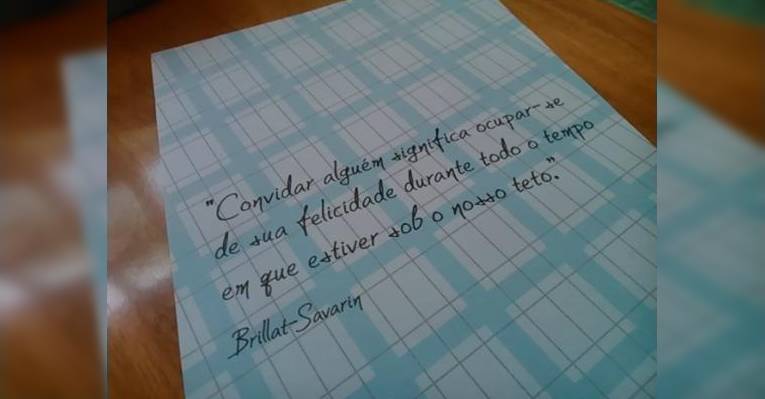 "Convidar alguém significa ocupar-se
de sua felicidade durante todo o tempo
em que estiver sob o nosso teto."
Brillat-Savarin